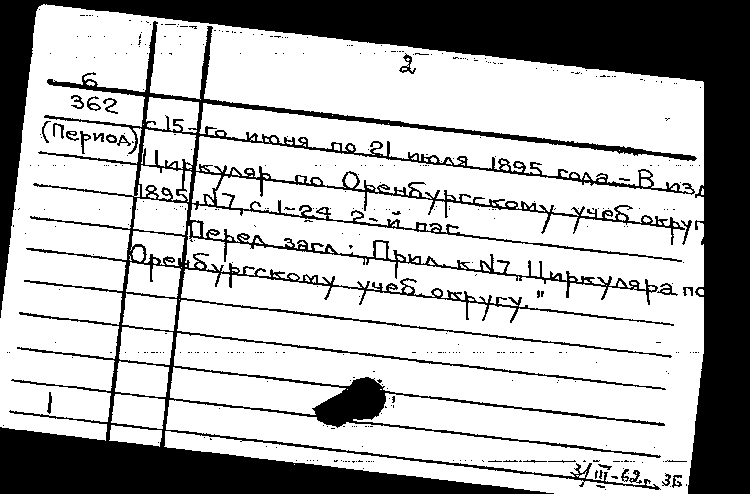 2
6
362
(Период)
с 15-го июня по 21 июля 1895 года.- В изд
Циркуляр по Оренбургскому учеб. округ
1895, N7, с. 1-24 2-й паг.
Перед загл.: „Прил. к N7 „Циркуляра по
Оренбургскому учеб. округу."
1
3/III-62 г. ЗБ